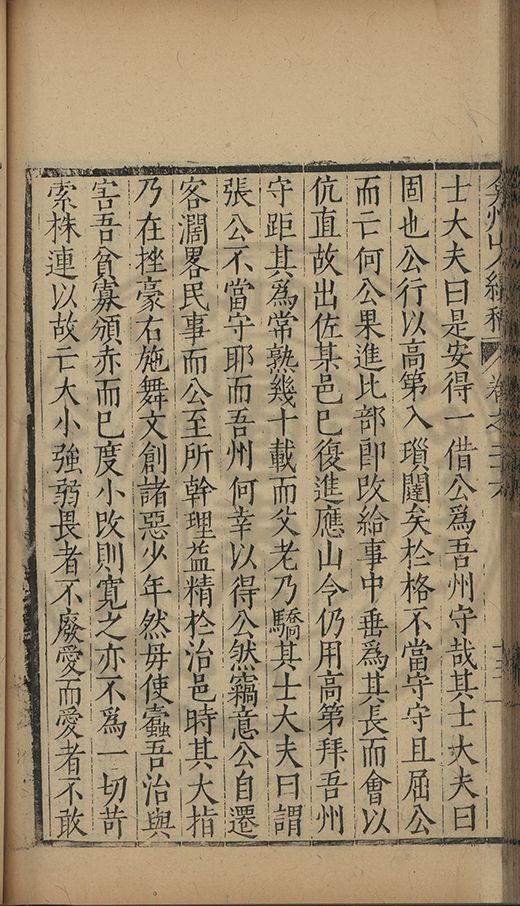 弇州山人續稿 卷之
士大夫曰是安得一借公爲吾州守哉其士大夫曰
固也公行以高第入瑣闥矣於格不當守守且屈公
而亡何公果進比部即攺給事中垂爲其長而會以
伉直故出佐某邑巳復進應山令仍用高第拜吾州
守距其爲常熟幾十載而父老乃驕其士大夫曰謂
張公不當守耶而吾州何幸以得公然竊意公自遷
客濶畧民事而公至所幹理益精於治邑時其大指
乃在挫豪右施舞文創諸惡少年然毋使蠹吾治與
害吾貧寡赤而巳度小攺則寛之亦不爲一切苛
索株連以故亡大小強弱畏者不廢愛而愛者不敢